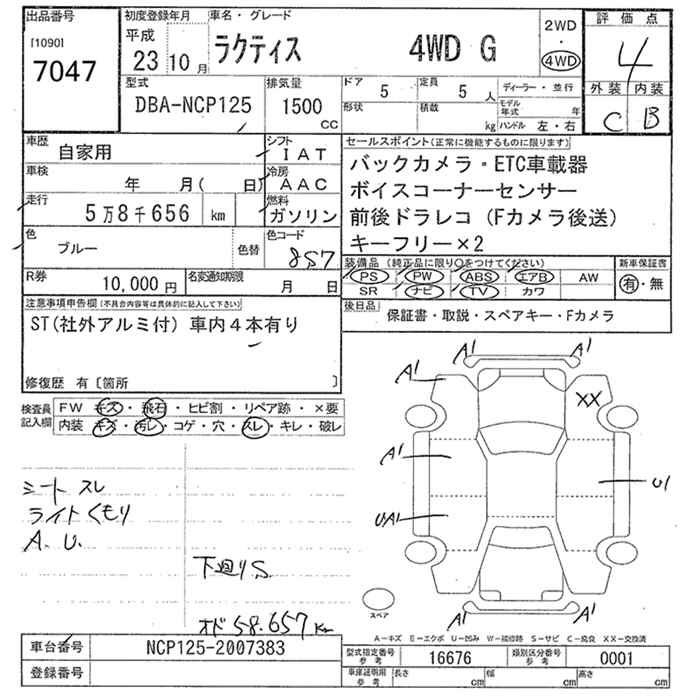 出品番号
[1090]
7047
初度登録年月
平成
23年10月
車名・グレード
ラクティス 4WD G
2WD
・
4WD
評価点
4
外装 内装
C B
型式
DBA-NCP125
排気量
1500
CC
ドア 5
形状
定員 5 人
積載 kg
ディーラー・並行
モデル年式 年
ハンドル 左・右
車歴
自家用
車検
年 月( 日)
走行
5万8千656 km
色
ブルー
色替
シフト
IAT
冷房
AAC
燃料
ガソリン
色コード
8S7
R券
10,000円
名変通知期限
月 日
セールスポイント(正常に機能するものに限ります)
バックカメラ・ETC車載器
ボイスコーナーセンサー
前後ドラレコ(Fカメラ後送)
キーフリー×2
装備品(純正品に限り○をつけてください)
PS PW ABS エアB AW
SR ナビ TV カワ
新車保証書
有・無
後日品
保証書・取説・スペアキー・Fカメラ
注意事項申告欄(不具合内容等は具体的に記入して下さい)
ST(社外アルミ付)車内4本有り
修復歴 有[箇所 ]
検査員記入欄
FW キズ・飛石・ヒビ割・リペア跡・×要
内装 キズ・汚レ・コゲ・穴・スレ・キレ・破レ
シート スレ
ライトくもり
A.U.
下廻りS
オド58.657Km
A1 A1
A1
XX
A1
U1
UA1
A1 A1
スペア
A-キズ E-エクボ U-凹み W-補修跡 S-サビ C-腐食 XX-交換済
車台番号
NCP125-2007383
登録番号
型式指定番号
参考
16676
類別区分番号
参考
0001
車庫証明用
参考
長さ cm 幅 cm 高さ cm